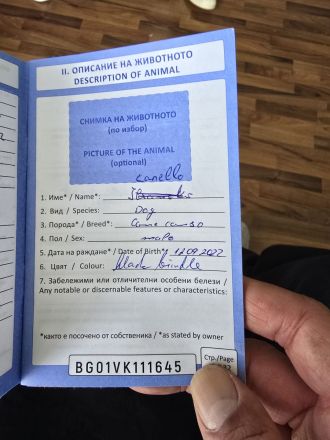 II. ОПИСАНИЕ НА ЖИВОТНОТО
DESCRIPTION OF ANIMAL
СНИМКА НА ЖИВОТНОТО
(по избор)
PICTURE OF THE ANIMAL
(optional)
canello
1. Име* / Name*:
2. Вид / Species: Dog
3. Порода* / Breed*: Cane corso
4. Пол / Sex: male
5. Дата на раждане* / Date of Birth*: 12.09.2022
6. Цвят / Colour: black brindle
7. Забележими или отличителни особени белези /
Any notable or discernable features or characteristics:
*както е посочено от собственика / *as stated by owner
BG01VK111645
Стр./Page